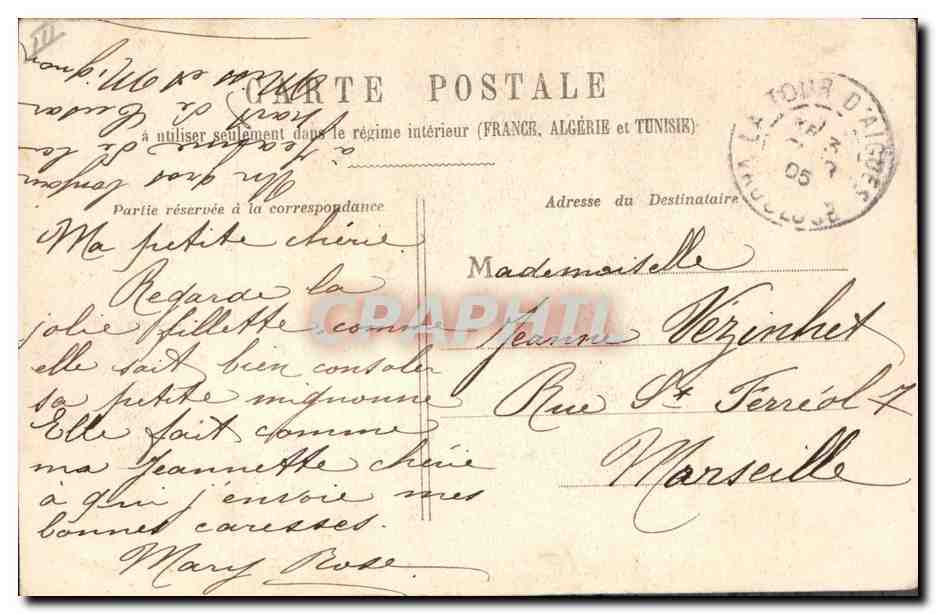 III
CARTE POSTALE
à utiliser seulement dans le régime intérieur (FRANCE, ALGÉRIE et TUNISIE)
LA TOUR D'AIGUES
VAUCLUSE
05
Partie réservée à la correspondance
Adresse du Destinataire
Ma petite chérie
Regarde la
jolie fillette comme
elle sait bien consoler
sa petite mignonne
Elle fait comme
ma Jeannette chérie
à qui j'envoie mes
bonnes caresses.
Mary Rose
Mademoiselle
Jeanne Vézinhet
Rue St Ferréol 7
Marseille
Un gros bonjour
à Jeanne de la
part de
Miss et Mignon
CPAPHIL